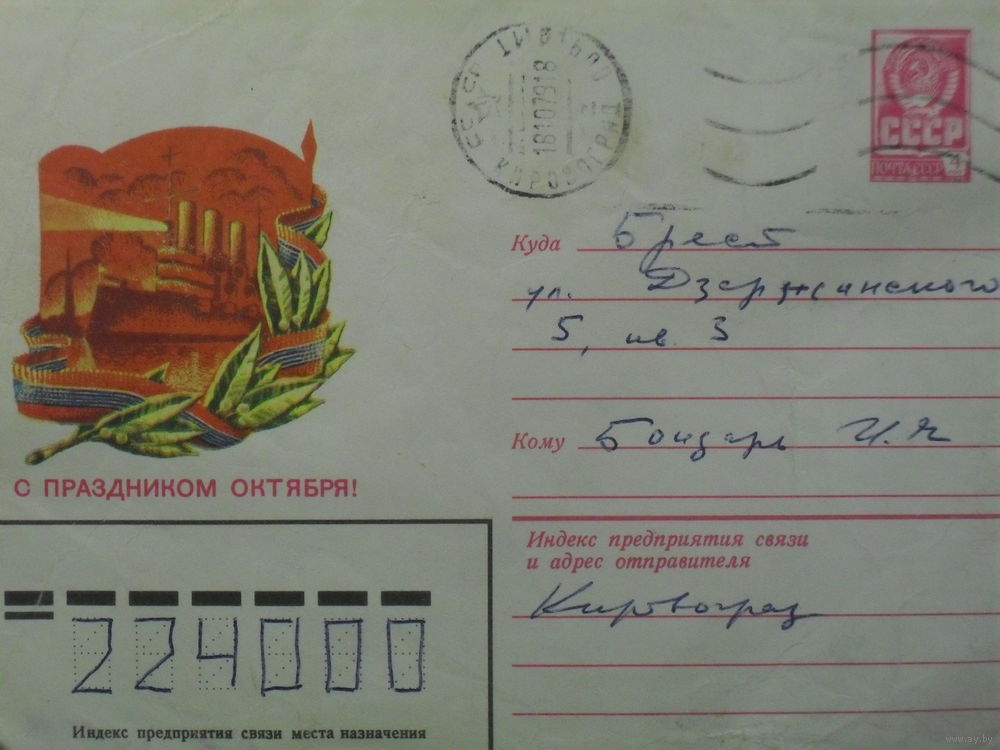 СССР
ПОЧТА СССР 4
18107918
КИРОВОГРАД
Куда Брест
ул. Дзержинского
5, кв. 3
Кому Бондарь
С ПРАЗДНИКОМ ОКТЯБРЯ!
Индекс предприятия связи
и адрес отправителя
Кировоград
224000
Индекс предприятия связи места назначения
www.ay.by